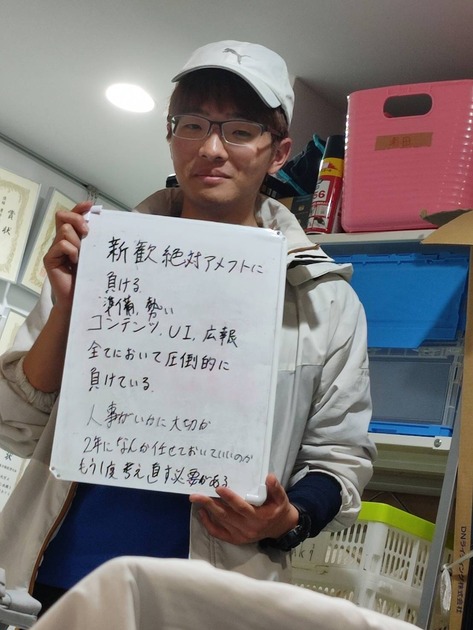 新歓絶対アメフトに
負ける
準備,勢い
コンテンツ,UI,広報
全てにおいて圧倒的に
負けている.
人事がいかに大切か
2年になんか任せておいていいのか
もう1度考え直す必要がある
PUMA
賞状
56